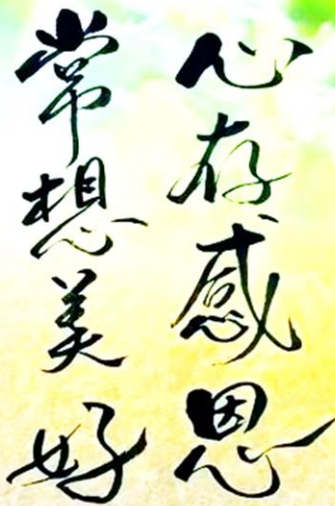 心存感恩
常想美好